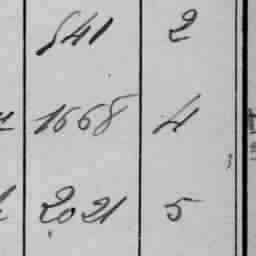 841 2
1668 4
2021 5